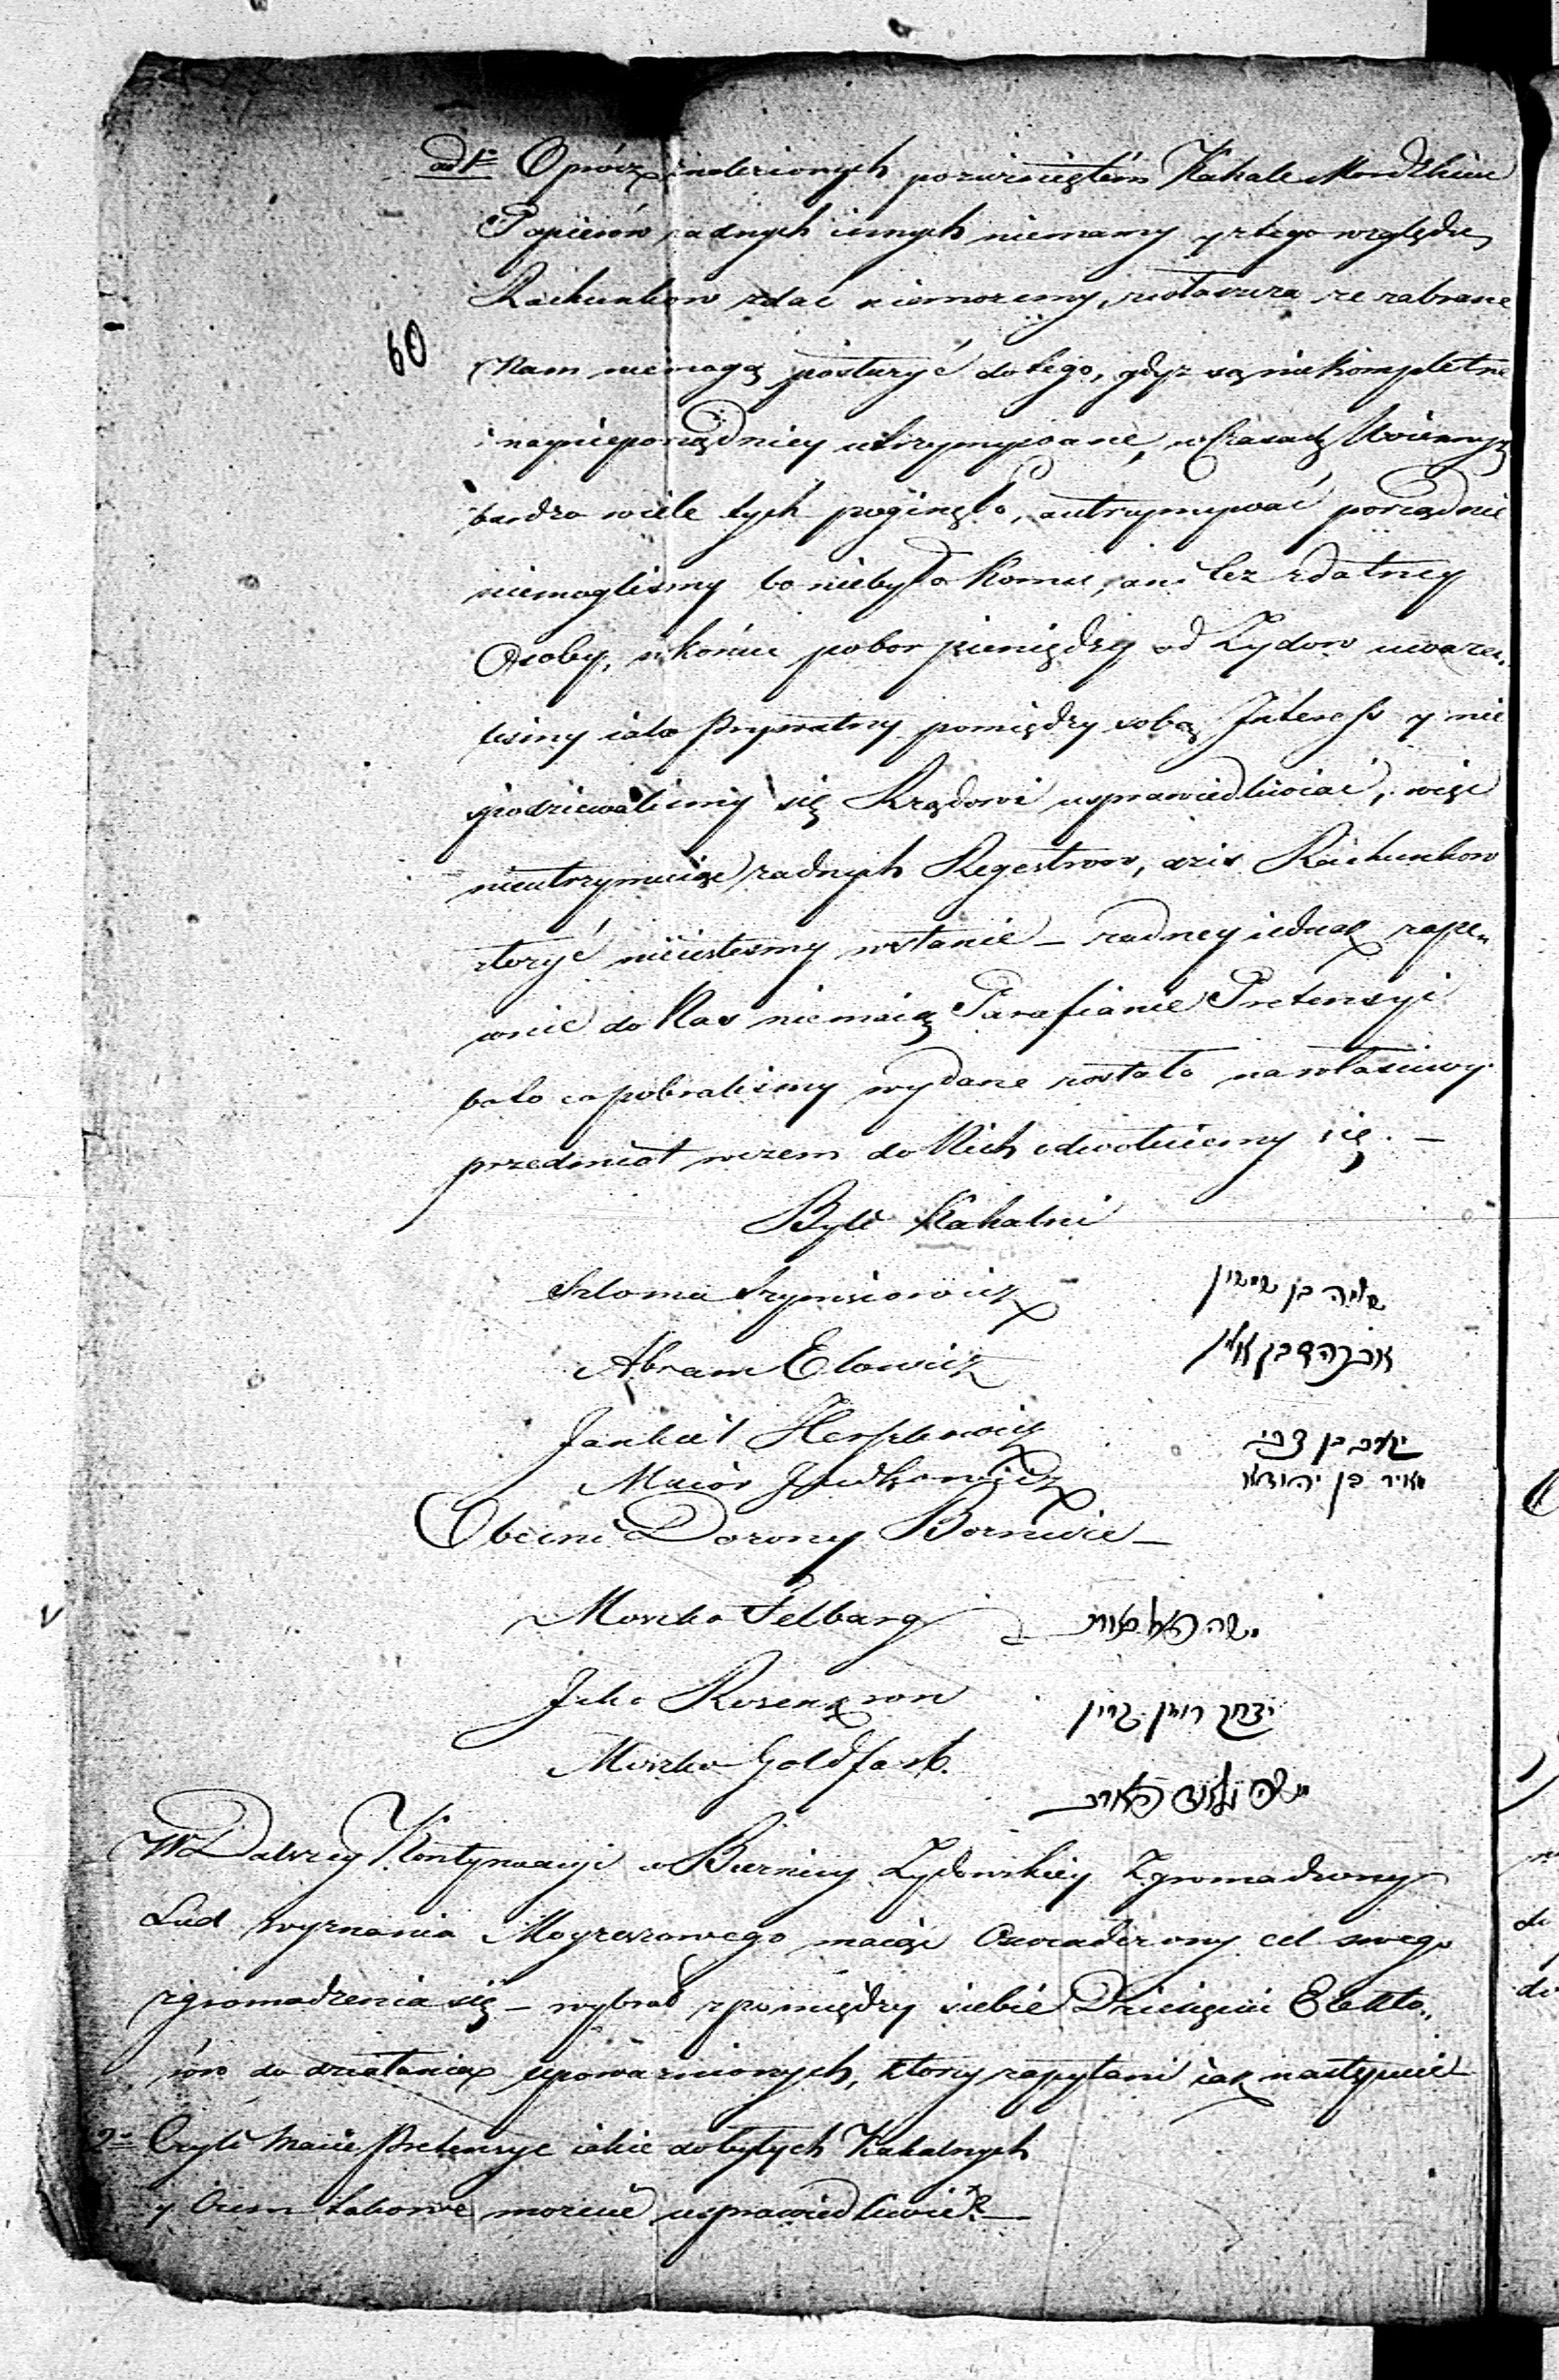 ad 1mo Oprócz znalezionych po zwiniętém Kahale Mordzkim
Papierów żadnych innych niemamy y z tego względu
Rachunkow zdać niemożemy, zwłaszcza ze zabrane
Nam niemogą posłużyć do tego, gdyż są niekompletne
i naynieporządniey utrzymywane, w Czasach Woiennych
bardzo wiele tych poginęło, a utrzymywać porządnie
niemogliśmy bo nie było komu, ani tez zdatney
Osoby, w końcu pobor pieniędzy od Zydow uwaza„
lismy iako Prywatny pomiędzy sobą Interess y nie
spodziewalismy się Rządowi usprawiedliwiać, więc
nieutrzymuiąc zadnych Regestrow, dziś Rachunkow
złozyć nieiestesmy wstanie – zadney iednak zape„
wnie do Nas niemaią Parafianie Pretensyi
bo to co pobralismy wydane zostało na własciwy
przedmiot wczem do Nich odwołuiemy się. –
Byli Kahalni
Szloma Szymsiowicz שלמה בן שמשון
Abram Elowicz אברהם בן
Jankiel Herszkowicz יעקב בן צבי
Maior Judkowicz מאיר בן יהודא
Obecni Dozory Boznicze –
Moszko Felbarg משה
Icko Rosenkron יצחק רוזין קרוין
Moszko Goldfarb. משה גולד פארב
W Dalszey Kontynuacyi w Boznicy Zydowskiey Zgromadzony
Lud wyznania Moyzeszowego maiąc Oswiadczony cel swego
zgromadzenia się – wybrał z pomiędzy siebie Dziesięciu Elekto„
rów do działania upowaznionych, ktorzy zapytani iak następuie
2o Czyli Macie Pretensye iakie do byłych Kahalnych
y Czem takowe mozecie usprawiedliwić? –
60